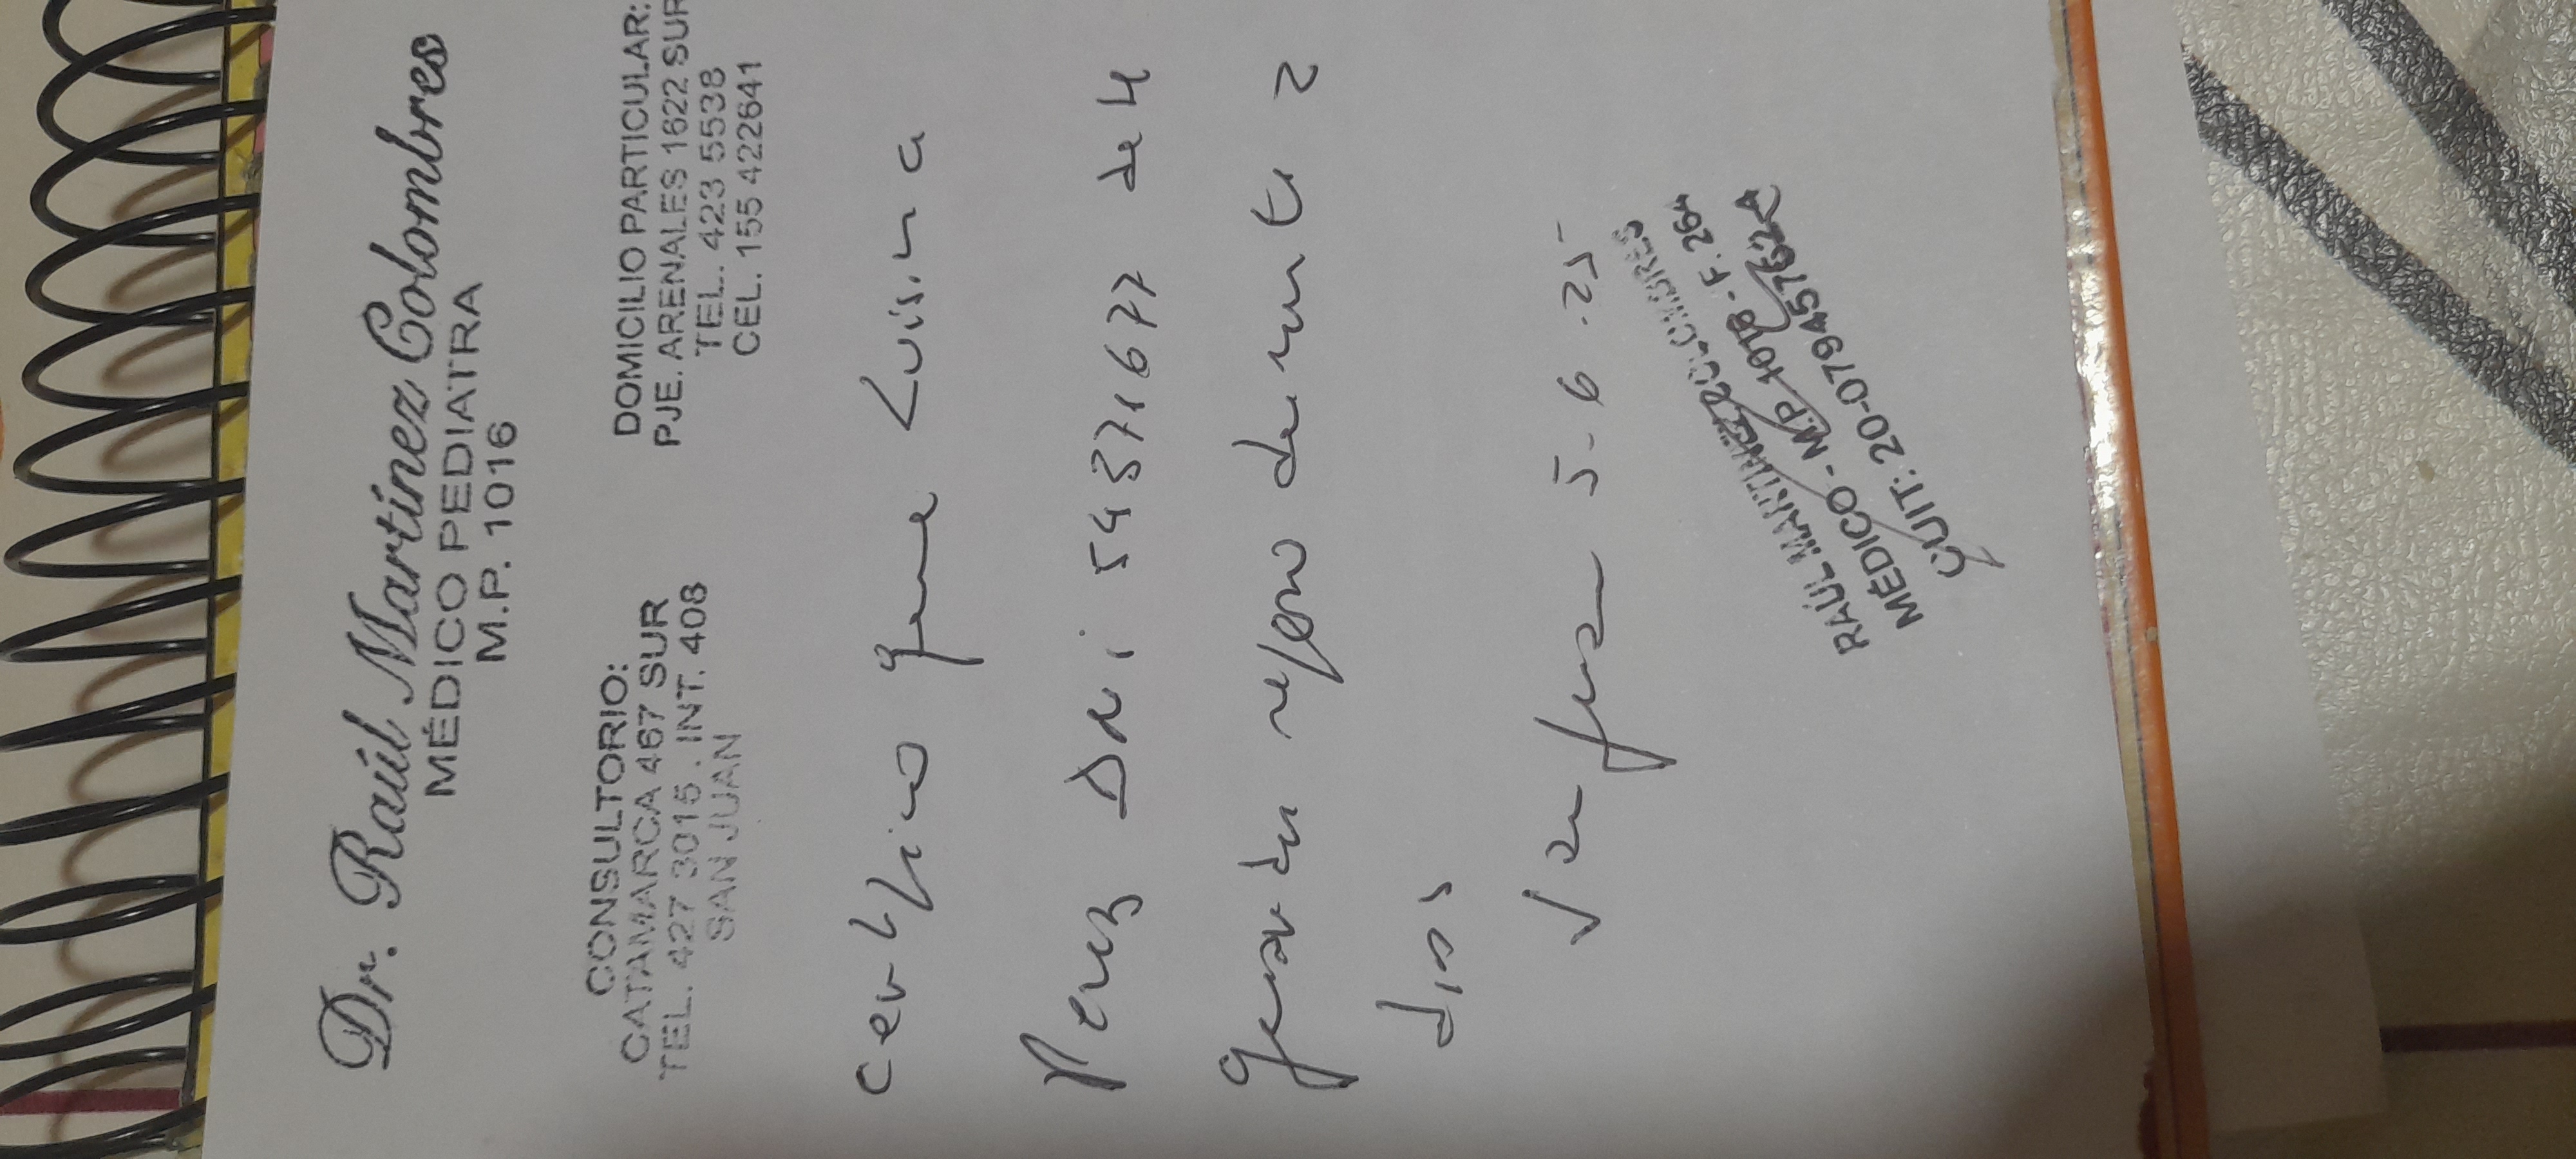 Dr. Raúl Martínez Colombres
MÉDICO PEDIATRA
M.P. 1016
CONSULTORIO:
CATAMARCA 467 SUR
TEL. 427 3015 . INT. 408
SAN JUAN
DOMICILIO PARTICULAR:
PJE. ARENALES 1622 SUR
TEL. 423 5538
CEL. 155 422641
Certifico que Luisina
Perez DNi 54371677 de 4
reposo durante 2
dias
San Juan 5-6-25-
RAÚL MARTINEZ COLOMBRES
MÉDICO - M.P. - F. 264
CUIT: